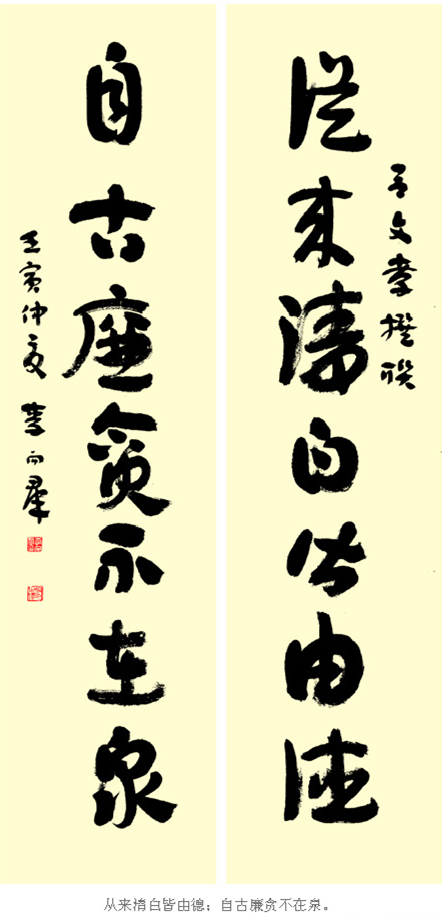 從来清白皆由德
文孝撰联
自古廉貪不在泉
壬寅仲夏 李向群
从来清白皆由德；自古廉贪不在泉。